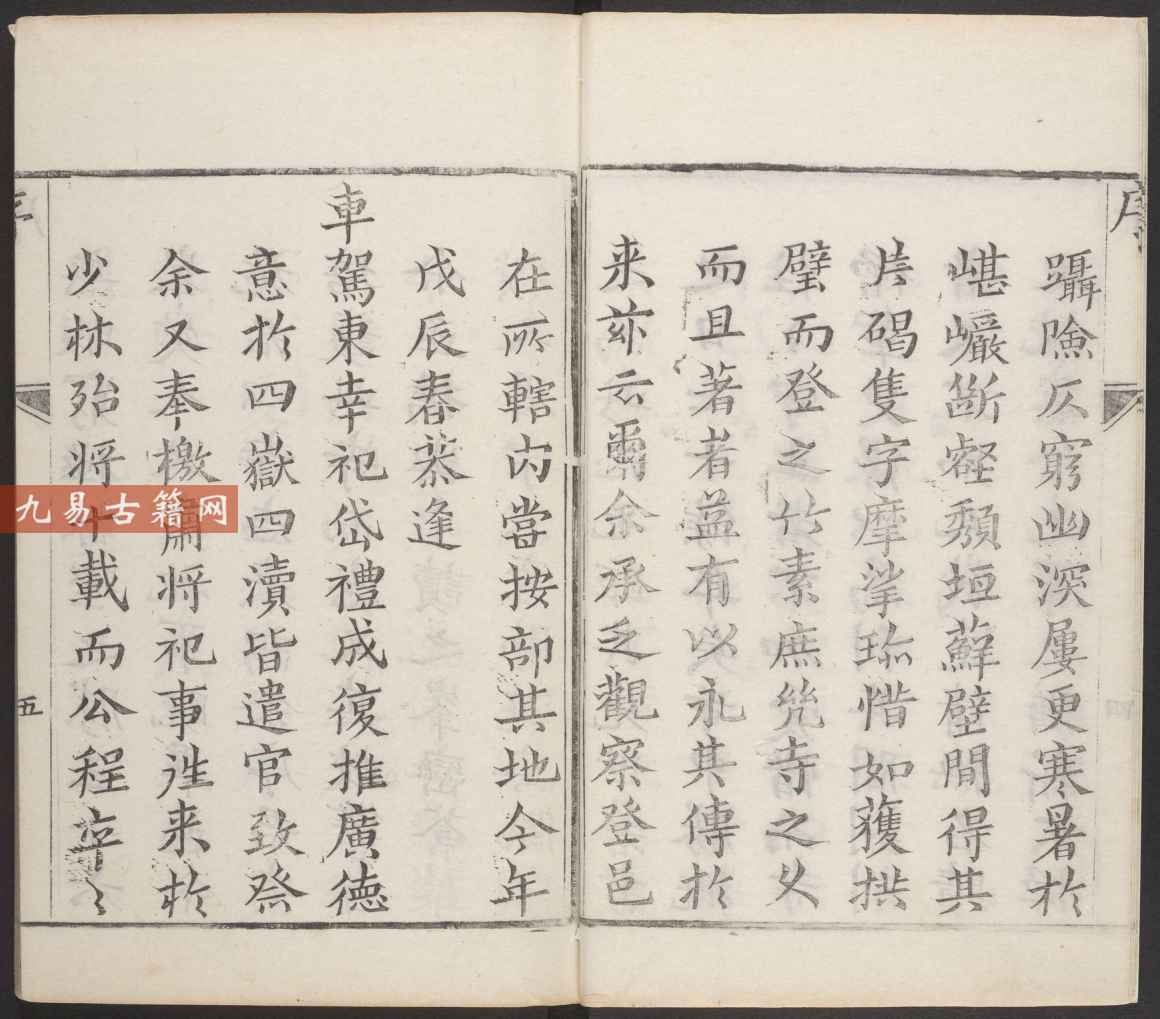 序
躡險仄窮幽深屢更寒暑於
嵁巖斷壑頹垣蘚壁間得其
片碣隻字摩挲珍惜如獲拱
璧而登之竹素庶幾寺之久
而且著者益有以永其傳於
来茲云爾余承乏觀察登邑
在所轄内當按部其地今年
戊辰春恭逢
車駕東幸祀岱禮成復推廣德
意於四嶽四瀆皆遣官致祭
余又奉檄肅將祀事泩来於
少林殆將十載而公程卒〻
序
五
九易古籍网